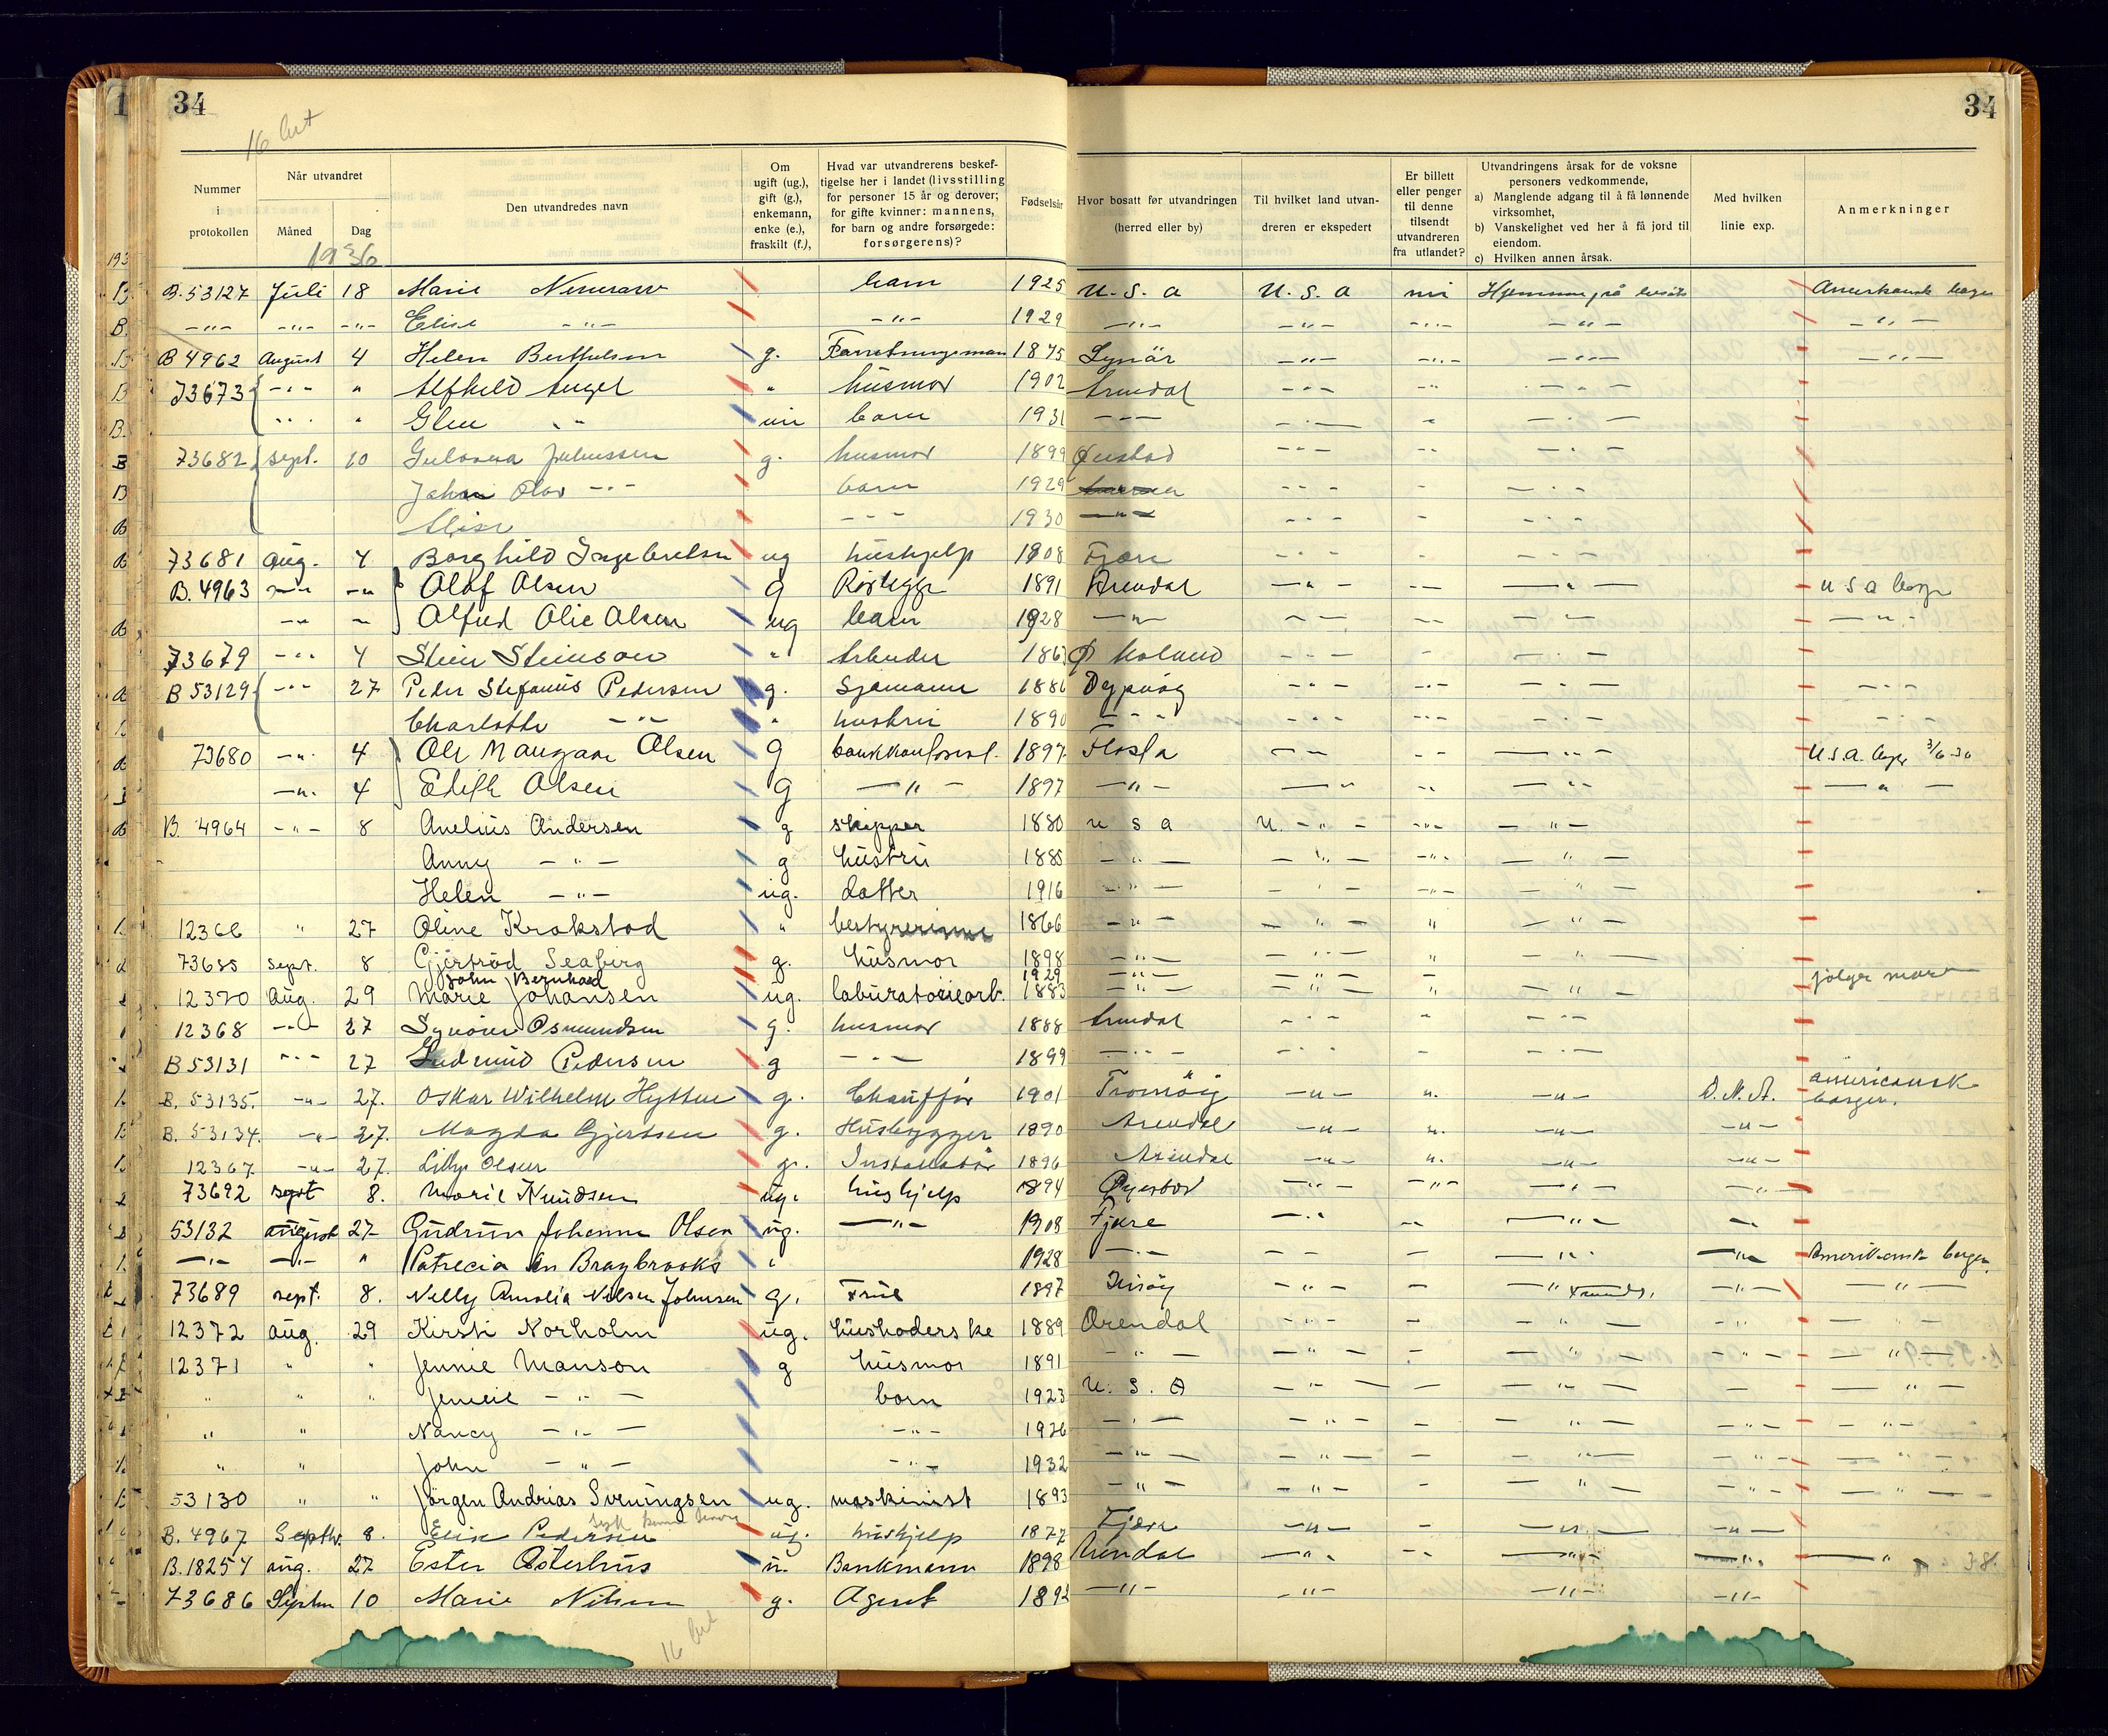 34
34
16
Nummer i protokollen
Når utvandret
Måned
Dag
Den utvandredes navn
Om ugift (ug.), gift (g.), enkemann, enke (e.), fraskilt (f.),
Hvad var utvandrerens beskef-tigelse her i landet (livsstilling for personer 15 år og derover; for gifte kvinner: mannens, for barn og andre forsørgede: forsørgerens)?
Fødselsår
Hvor bosatt før utvandringen (herred eller by)
Til hvilket land utvan-dreren er ekspedert
Er billett eller penger til denne tilsendt utvandreren fra utlandet?
Utvandringens årsak for de voksne personers vedkommende,
a) Manglende adgang til å få lønnende virksomhet,
b) Vanskelighet ved her å få jord til eiendom.
c) Hvilken annen årsak.
Med hvilken linie exp.
Anmerkninger
193
1936
B. 53127 Juli 18 Marie barn 1925 U. S. a U. S. a
-"- -"- -"- Elise -"- -"- 1929 -"- -"- -"- -"- -"-
B 4962 August 4 Helen Berthelsen g. 1875 -"- -"- -"- -"-
73673 -"- " Alfhild g. husmor 1902 Arendal -"- -"- -"-
-"- " Glen -"- barn 1931 -"-
73682 Sept. 10 g. husmor 1899 -"- -"- -"-
Johan Olav -"- barn 1929 -"- -"- -"-
-"- 1930 -"- -"- -"- -"-
73681 Aug. 4 Borghild Ingebretsen ug hushjelp 1908 Fjære -"- -"- -"-
B. 4963 -"- -"- Olaf Olsen g 1891 Arendal -"- -"- -"- U S a
-"- -"- Alfred Olsen ug barn 1928 -"- -"- -"- -"- -"-
73679 -"- 4 Stein Steinson " Arbeider Ø Moland -"- -"- -"-
B 53129 -"- 27 Peder Stefanus Pedersen g. Sjømann 1886 Dypvåg -"- -"- -"- -"-
Charlotte -"- " hustru 1890 -"- -"- -"- -"- -"-
73680 -"- 4 Ole Olsen g 1897 Flosta -"- -"- -"- U.S.a.
-"- 4 Edith Olsen g -"- 1897 -"- -"- -"- -"- -"-
B. 4964 -"- 8 Anelius Andersen g skipper 1880 u s a U. -"- -"- -"-
Anny -"- g hustru 1885 -"- -"- -"- -"-
Helen -"- ug. datter 1916 -"- -"- -"- -"-
12366 " 27 Oline Krokstad " bestyrerinne 1866 -"- -"- " -"-
73685 Sept. 8 Gjertrud Seaberg g. husmor 1898 -"- -"- " -"-
John Bernhard 1929 -"- -"- følger
12370 Aug. 29 Marie Johansen ug. laburatoriearb. 1883 -"- -"- " -"-
12368 -"- 27 Osmundsen g. husmor 1888 Arendal -"- - -"-
B 53131 -"- 27 Pedersen g -"- 1899 -"- -"- - -"-
B. 53135. -"- 27. Oskar Wilhelm Hytten g. Chauffør 1901 Tromøy -"- ". -"- D. N. A. americansk borger.
B. 53134. -"- 27. Magda Gjertsen g. Husbygger 1890 Arendal -"- ". -"- -"-
12367 -"- 27. Lilly Olsen g. Installatør 1896 Arendal -"- ". -"- -"-
73692 Sept 8. Marie Knudsen ug. hushjelp 1894 Øyestad -"- -"- -"- -"-
53132 august 27 Gudrun Johanne Olsen ug. -"- 1908 Fjære -"- -"- -"- -"-
-"- -"- " Patrecia An Braybrooks " 1928 -"- - - -"- -"- Amerikansk borger.
73689 sept. 8. Nelly Amalia Nelsen Johnsen g. Frue 1897 Hisøy -"- - -"- -"- -"-
12372 Aug. 29 Kirsti Norholm ug. husholderske 1889 Arendal -"- - -"- -"- -"-
12371 " " Jennie Manson g husmor 1891 -"- -"- - -"- - -"-
" " " -"- barn 1923 U. S. A -"- - -"- - -"-
" " Nancy -"- -"- 1926 -"- -"- - -"- -"- -"-
" " John -"- -"- 1932 -"- -"- - -"- -"- -"-
53130 " " Jørgen Andrias Svenningsen ug. maskinist 1893 -"- -"- - -"- -"- -"-
B. 4967 Septbr. 8. Elise Pedersen ug. hushjelp 1877 Fjære -"- - -"- -"-
B. 18254 aug. 27 Ester Osterhus u. Bankmann 1898 Arendal -"- -"- -"- -"- -"- 38.
73686 10 Marie Nilsen g. Agent -"- -"- -"- -"-
16